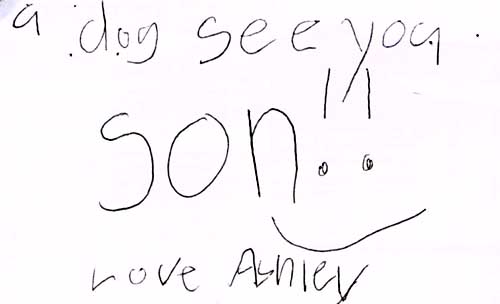 a dog see you
son!!
rove Ashley